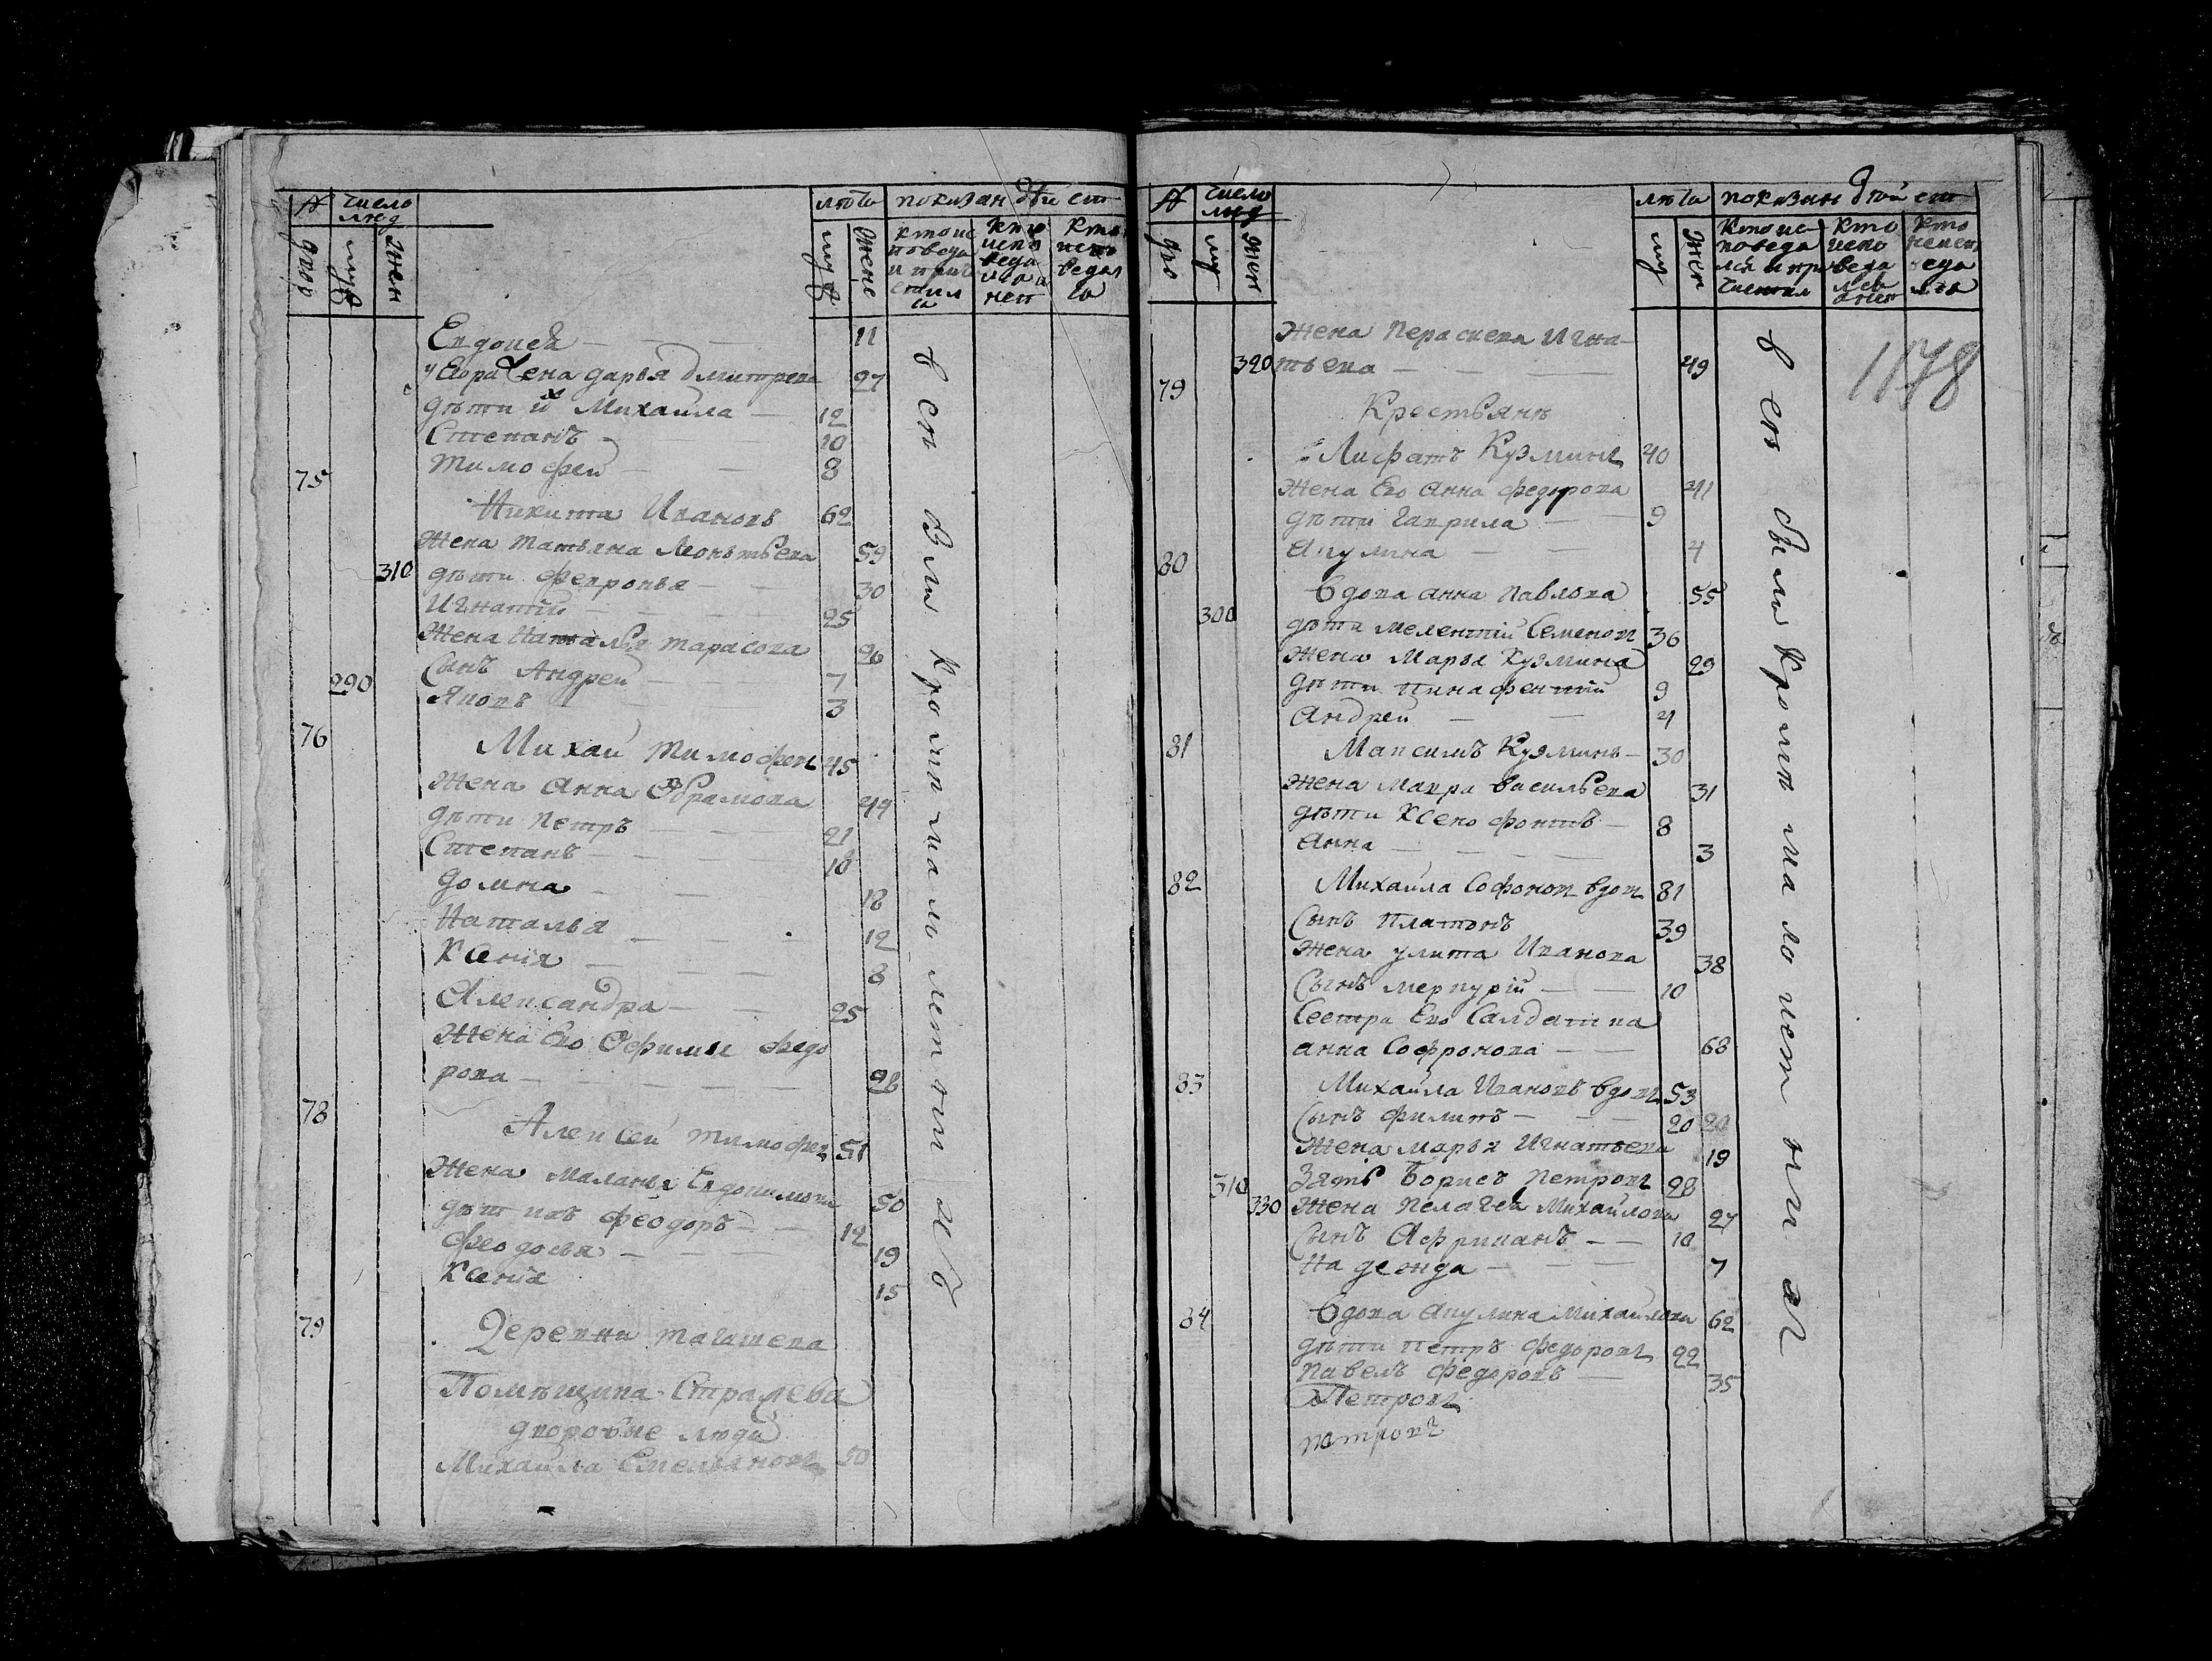 № число люд лѣта показан дѣй ст
двор муж жен муж жене кто ис поведа и прич стил ся кто испо веда лся а нет кто неиспо ведал ся
Евдокеѧ 11
у Егора жена дарья дмитрева 27
дѣти их Михаила 12
Степанъ 10
75 тимофей 8
Никита Ивановъ 62
жена татьяна Леонтьева 59
310 дѣти февронья 30
Игнатий 25
жена наталья тарасова 26
290 сынъ Андрей 7
Яковъ 3
76 Михаи тимофеев 45
жена анна Обрамова 44
дѣти петръ 21
Степанъ 10
домна 18
Наталья 12
Ксения 8
Александра 25
жена Его Офимья федо
рова 28
78 Алексей тимофее 51
жена маланья Евдокимова 50
дѣт ихъ феодоръ 12
феодосья 19
Ксения 15
79 Деревни тагашева
Помѣщика Стралева
дворовые люди
Михаила Емельянов 50
всѣ были кромѣ малолетних
№ число люд лѣта показан дѣй ст
дво муж жен муж жен кто ис поведа лся и при частил кто испо веда лся а нет кто неисп оведа лся
1178
жена Параскева Игна
320 тьева 49
79 Крестьянѣ
Лифатъ Кузмин 40
жена Его анна федорова 41
дѣти гаврила 9
80 акулина 4
вдова анна Павлова 55
300 дѣти мелентий Семенов 36
жена Марья Кузмина 29
дѣти пинафентий 9
андрей 4
81 Максимъ Кузминъ 30
жена мавра васильева 31
дѣти Ксенофонтъ 8
анна 3
82 Михаила Софонов вдов 81
сынъ платонъ 39
жена улита Иванова 38
сынъ меркурий 10
сестра Его Салдатка
анна Софронова 68
83 Михаила Ивановъ вдов 53
сынъ филипъ 20 20
жена марья Игнатьева 19
310 Зять борисъ петров 28
330 жена пелагея Михайлова 27
сынъ Африканъ 10
надежда 7
84 вдова акулина михайлова 62
дѣти петръ федоров 22
павелъ федоровъ 35
Петров
петров
всѣ были кромѣ малолетних